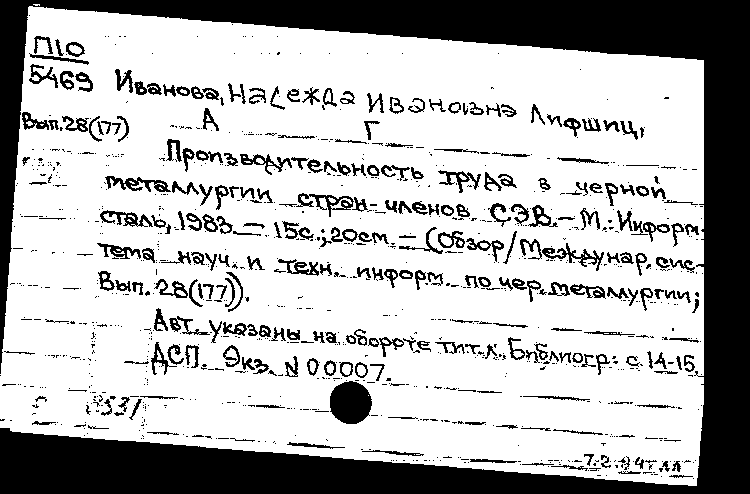 П10
5469 Иванова, Надежда Ивановна Лифшиц,
Вып.28(177) А Г
Производительность труда в черной
металлургии стран-членов СЭВ.- М.: Информ-
сталь, 1983.- 15с.; 20см.- (Обзор/Междунар. сис-
тема науч. и техн. информ. по чер. металлургии;
Вып. 28(177)).
Авт. указаны на обороте тит.л. Библиогр: с. 14-15.
ДСП. Экз. N 00007.